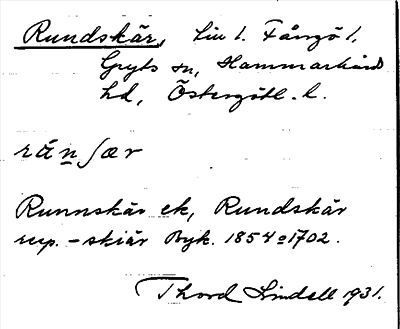 Rundskär, Liu l. Fångö l,
Gryts sn, Hammarkinds
hd, Östergötl. l.
rä́n ʃær
Runnskär ek, Rundskär
resp. -skiär Byk. 1854 o 1702.
Thord Lindell 1931.